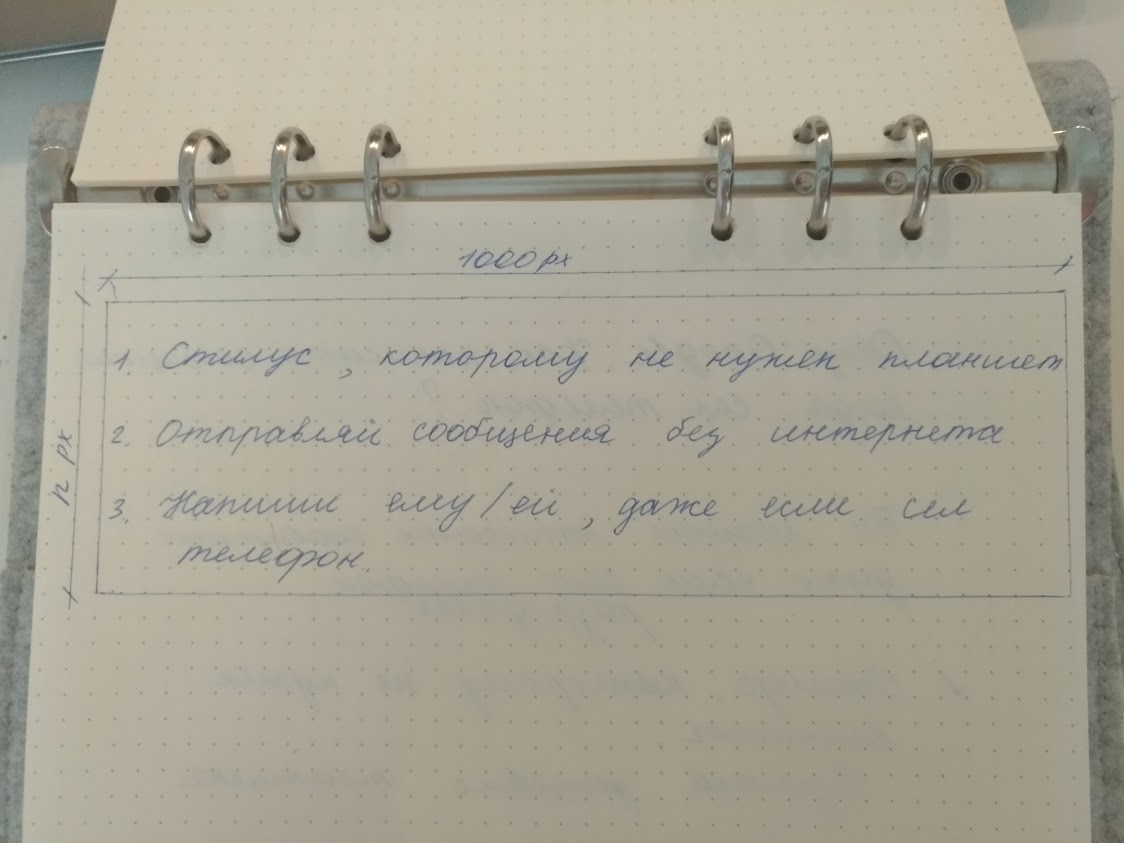 1000 px
n px
1. Стилус, которому не нужен планшет
2. Отправляй сообщения без интернета
3. Напиши ему/ей, даже если сел
телефон.